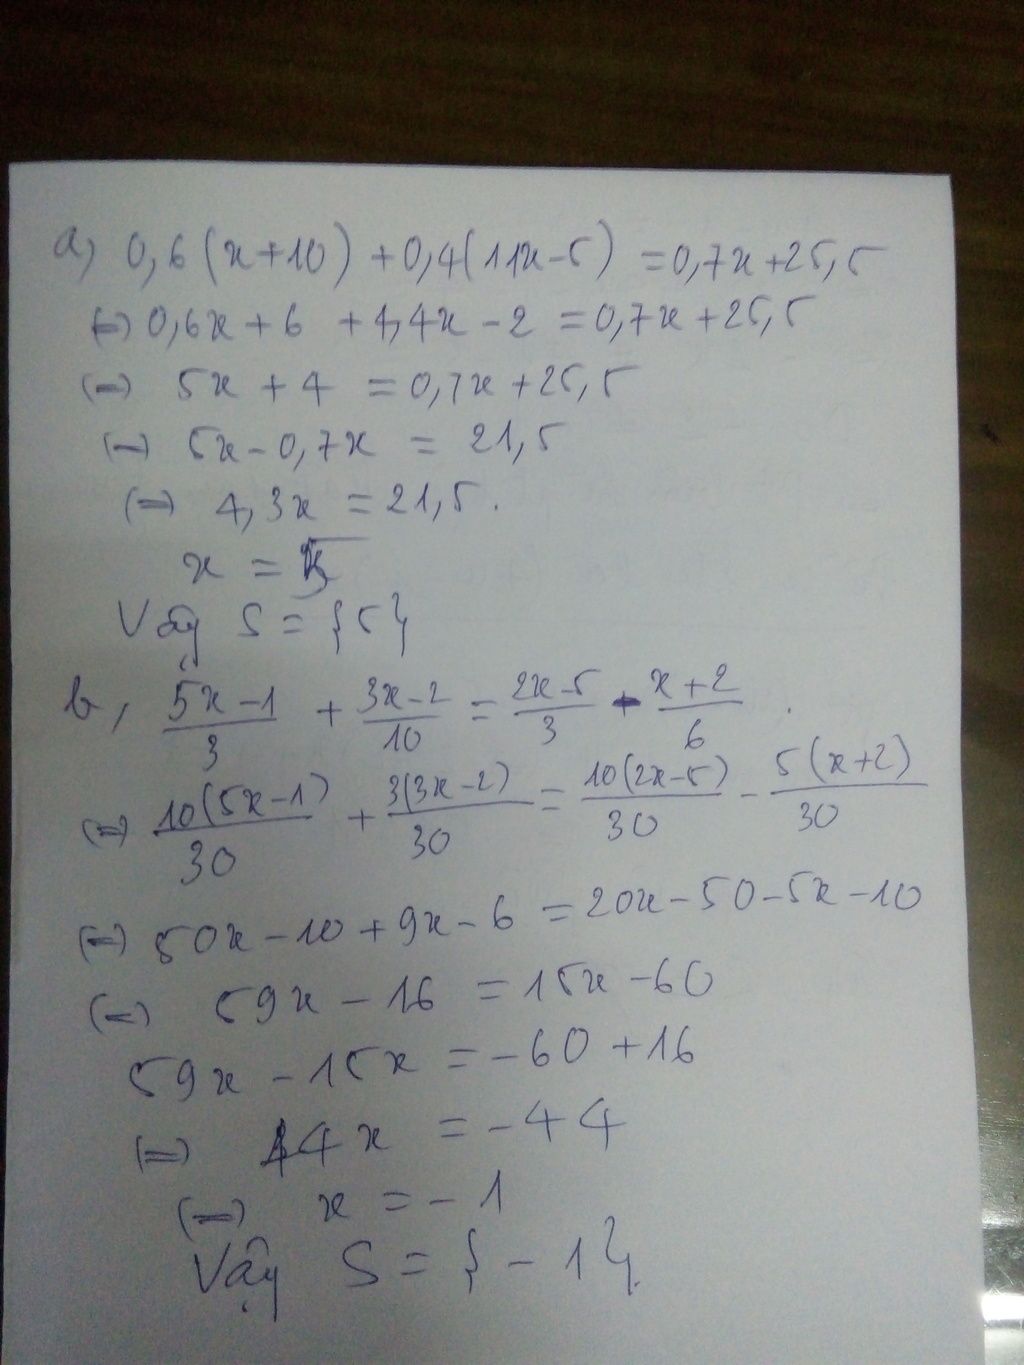 a, 0,6(x+10) + 0,4(11x-5) = 0,7x+25,5
(=) 0,6x + 6 + 4,4x - 2 = 0,7x + 25,5
(=) 5x + 4 = 0,7x + 25,5
(=) 5x - 0,7x = 21,5
(=) 4,3x = 21,5.
x = 5
Vậy S = {5}
b, (5x-1)/3 + (3x-2)/10 = (2x-5)/3 - (x+2)/6.
(=) 10(5x-1)/30 + 3(3x-2)/30 = 10(2x-5)/30 - 5(x+2)/30
(=) 50x - 10 + 9x - 6 = 20x - 50 - 5x - 10
(=) 59x - 16 = 15x - 60
59x - 15x = -60 + 16
(=) 44x = -44
(=) x = -1
Vậy S = {-1}.